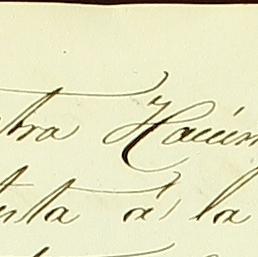 tra Hacien
sta á la